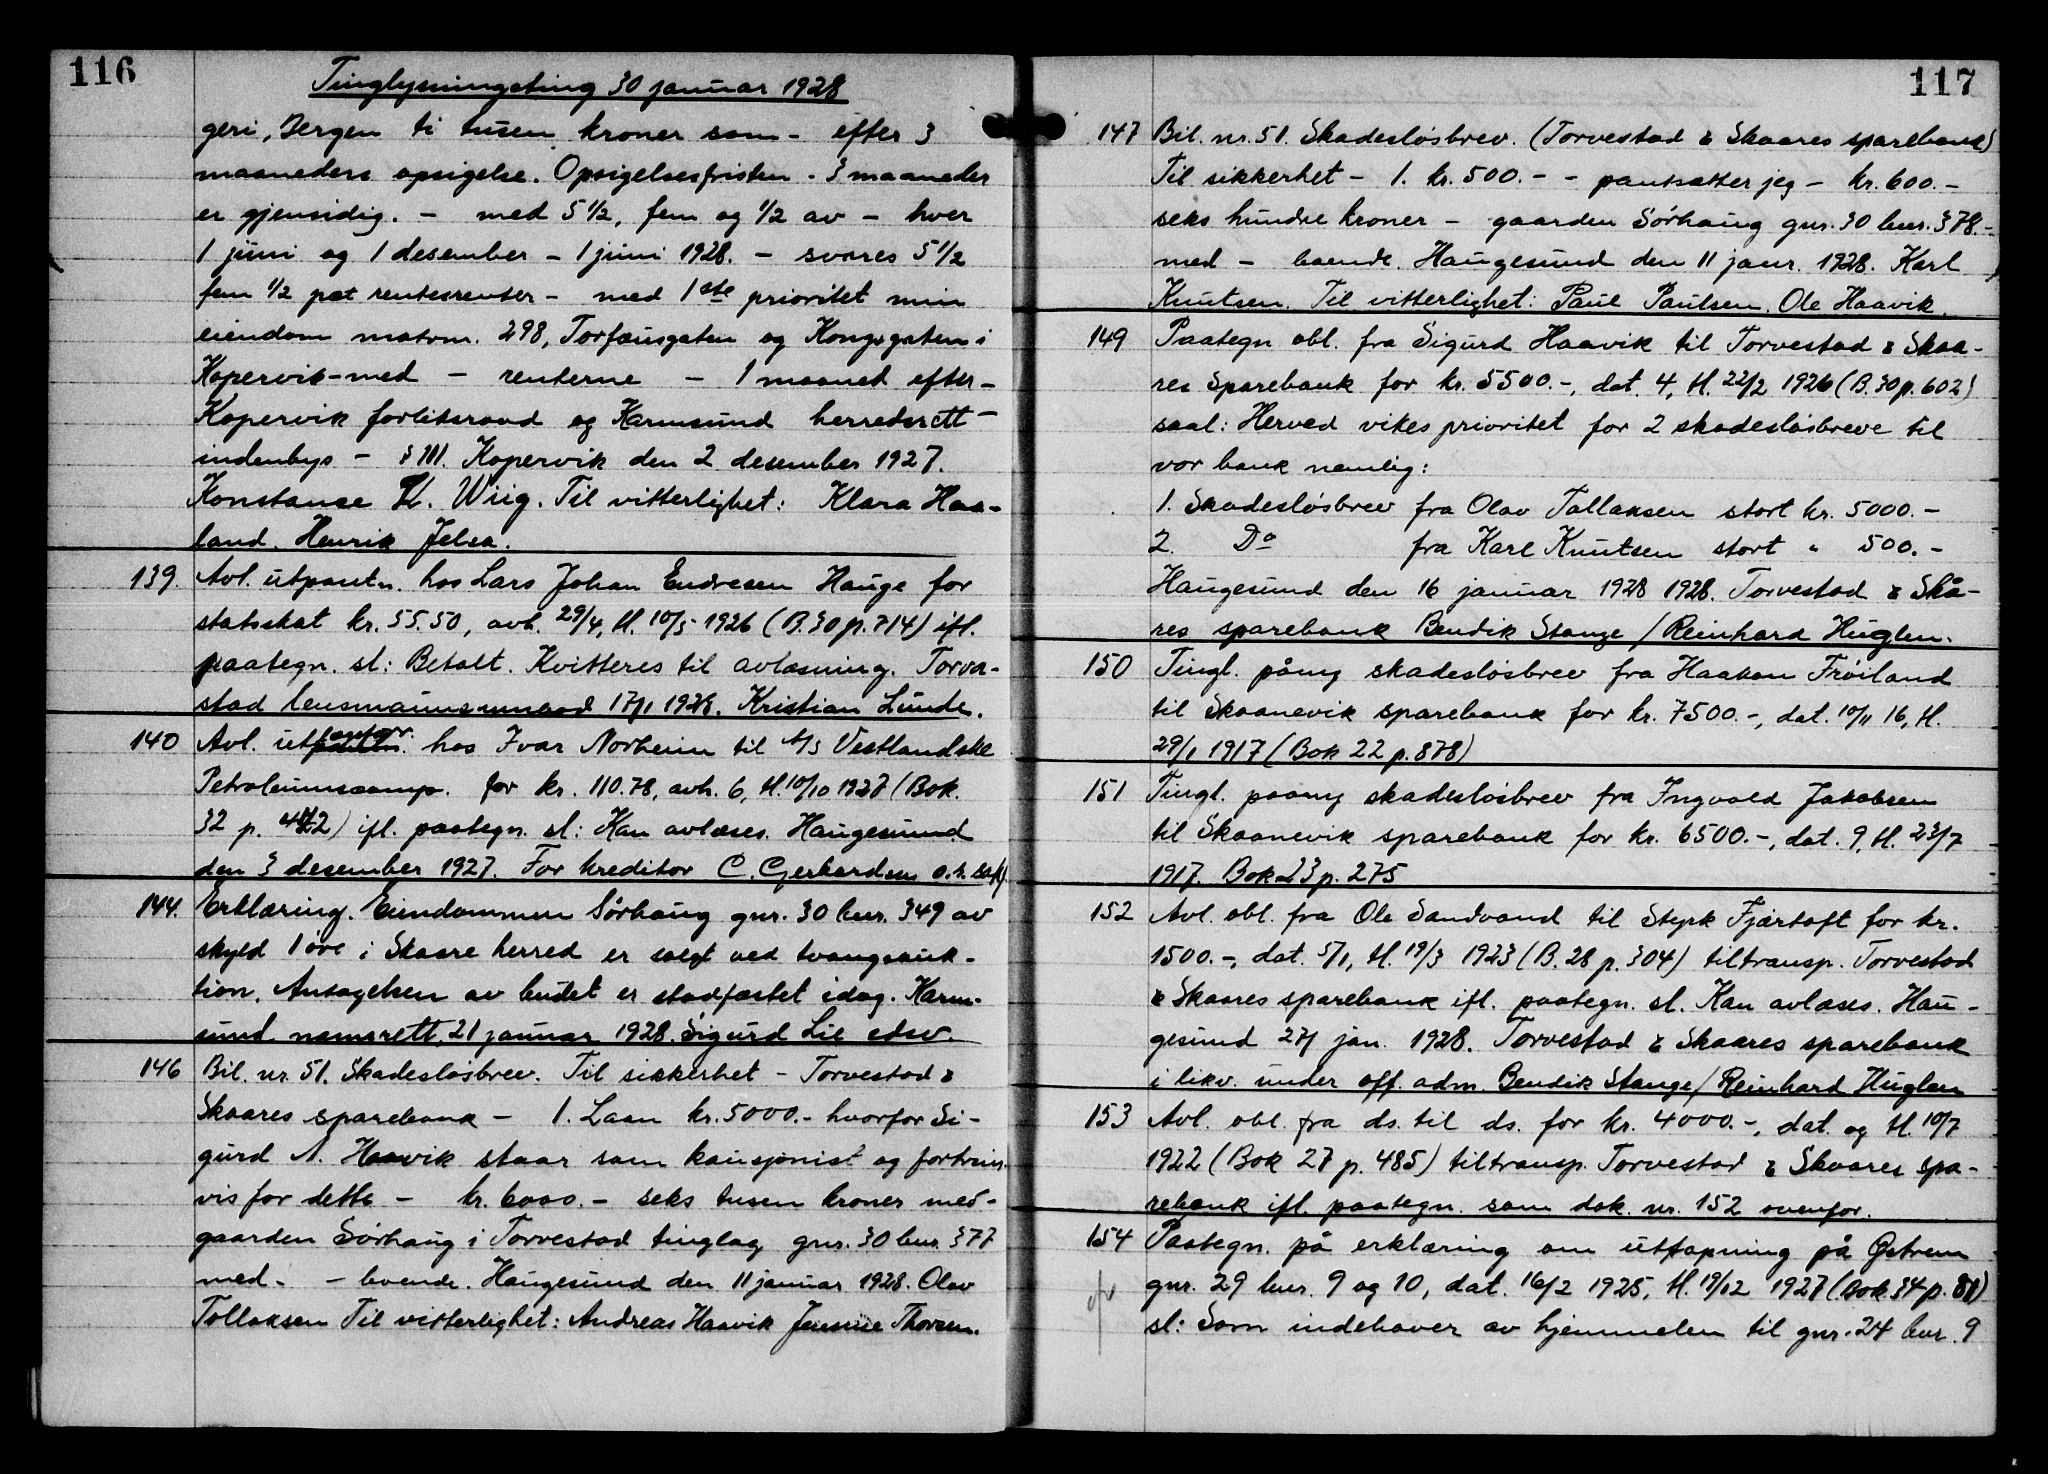 116
Tinglysningsting 30 januar 1928
geri, Bergen ti tusen kroner som - efter 3
maaneders opsigelse. Opsigelsesfristen - 3 maaneder
er gjensidig. - med 5 1/2, fem og 1/2 av - hver
1 juni og 1 desember - 1 juni 1928. - svares 5 1/2
fem 1/2 pct rentesrenter - med 1ste prioritet min
eiendom matrnr. 298, Torfæusgaten og Kongsgaten i
Kopervik - med - renterne - 1 maaned efter -
Kopervik forliksraad og Karmsund herredsrett -
indenbys - § 111. Kopervik den 2 desember 1927.
Konstanse K. Wiig. Til vitterlighet: Klara Haa-
land. Henrik Jelsa.
139. Avl. utpantn. hos Lars Johan Endresen Hauge for
statsskat kr. 55.50, avh. 29/4, tl. 10/5 1926 (B. 30 p. 714) ifl.
paategn. sl: Betalt. Kvitteres til avlæsning. Torve-
stad lensmannsombod 17/1 1928. Kristian Lunde.
140 Avl. utpantn. hos Ivar Norheim til A/S Vestlandske
Petroleumscomp. for kr. 110.78, avh. 6, tl. 10/10 1927 (Bok.
32 p. 442) ifl. paategn. sl: Kan avlæses. Haugesund
den 3 desember 1927. For kreditor C. Gerhardsen o.r. sakf.
144. Erklæring. Eiendommen Sørhaug gnr. 30 bnr. 349 av
skyld 1 øre i Skaare herred er solgt ved tvangsauk-
tion. Antagelsen av budet er stadfæstet idag. Karm-
sund namsrett, 21 januar 1928. Sigurd Lie edsv.
146 Bil. nr. 51. Skadesløsbrev. Til sikkerhet - Torvestad &
Skaares sparebank - 1. Laan kr. 5000.- hvorfor Si-
gurd A. Haavik staar som kausjonist og fortrins-
vis for dette - kr. 6000.- seks tusen kroner med-
gaarden Sørhaug i Torvestad tinglag gnr. 30 bnr. 377
med - - boende. Haugesund den 11 januar 1928. Olav
Tollaksen Til vitterlighet: Andreas Haavik Jensine Thorsen.
117
147 Bil. nr. 51. Skadesløsbrev. (Torvestad & Skaares sparebank)
Til sikkerhet - 1. kr. 500.- - pantsætter jeg - kr. 600.-
seks hundre kroner - gaarden Sørhaug gnr. 30 bnr. 378.-
med - boende. Haugesund den 11 janr. 1928. Karl
Knutsen. Til vitterlighet: Paul Paulsen. Ole Haavik.
149 Paategn obl. fra Sigurd Haavik til Torvestad & Skaa-
res Sparebank for kr. 5500.-, dat. 4, tl. 22/2 1926 (B. 30 p. 602)
saal: Herved vikes prioritet for 2 skadesløsbreve til
vor bank nemlig:
1. Skadesløsbrev fra Olav Tollaksen stort kr. 5000.-
2. Do fra Karl Knutsen stort " 500.-
Haugesund den 16 januar 1928 1928. Torvestad & Skå-
res sparebank Bendik Stange / Reinhard Huglen.
150 Tingl. påny skadesløsbrev fra Haakon Frøiland
til Skaanevik sparebank for kr. 7500.-, dat. 10/11 16, tl.
29/1 1917 (Bok 22 p. 878)
151 Tingl. paany skadesløsbrev fra Ingvald Jakobsen
til Skaanevik sparebank for kr. 6500.-, dat. 9, tl. 23/7
1917. Bok 23 p. 275
152 Avl. obl. fra Ole Sandvand til Styrk Fjærtoft for kr.
1500.-, dat. 5/1, tl. 19/3 1923 (B. 28 p. 304) tiltransp. Torvestad
& Skaares sparebank ifl. paategn. sl. Kan avlæses. Hau-
gesund 27/ jan. 1928. Torvestad & Skaares sparebank
i likv. under off. adm. Bendik Stange / Reinhard Huglen
153 Avl. obl. fra ds. til ds. for kr. 4000.-, dat. og tl. 10/7
1922 (Bok 27 p. 485) tiltransp. Torvestad & Skaares spa-
rebank ifl. paategn. som dok. nr. 152 ovenfor.
154 Paategn. på erklæring om uttapning på Østrem
gnr. 29 bnr. 9 og 10, dat. 16/2 1925, tl. 19/12 1927 (Bok 34 p. 81)
sl: Som indehaver av hjemmelen til gnr. 24 bnr. 9